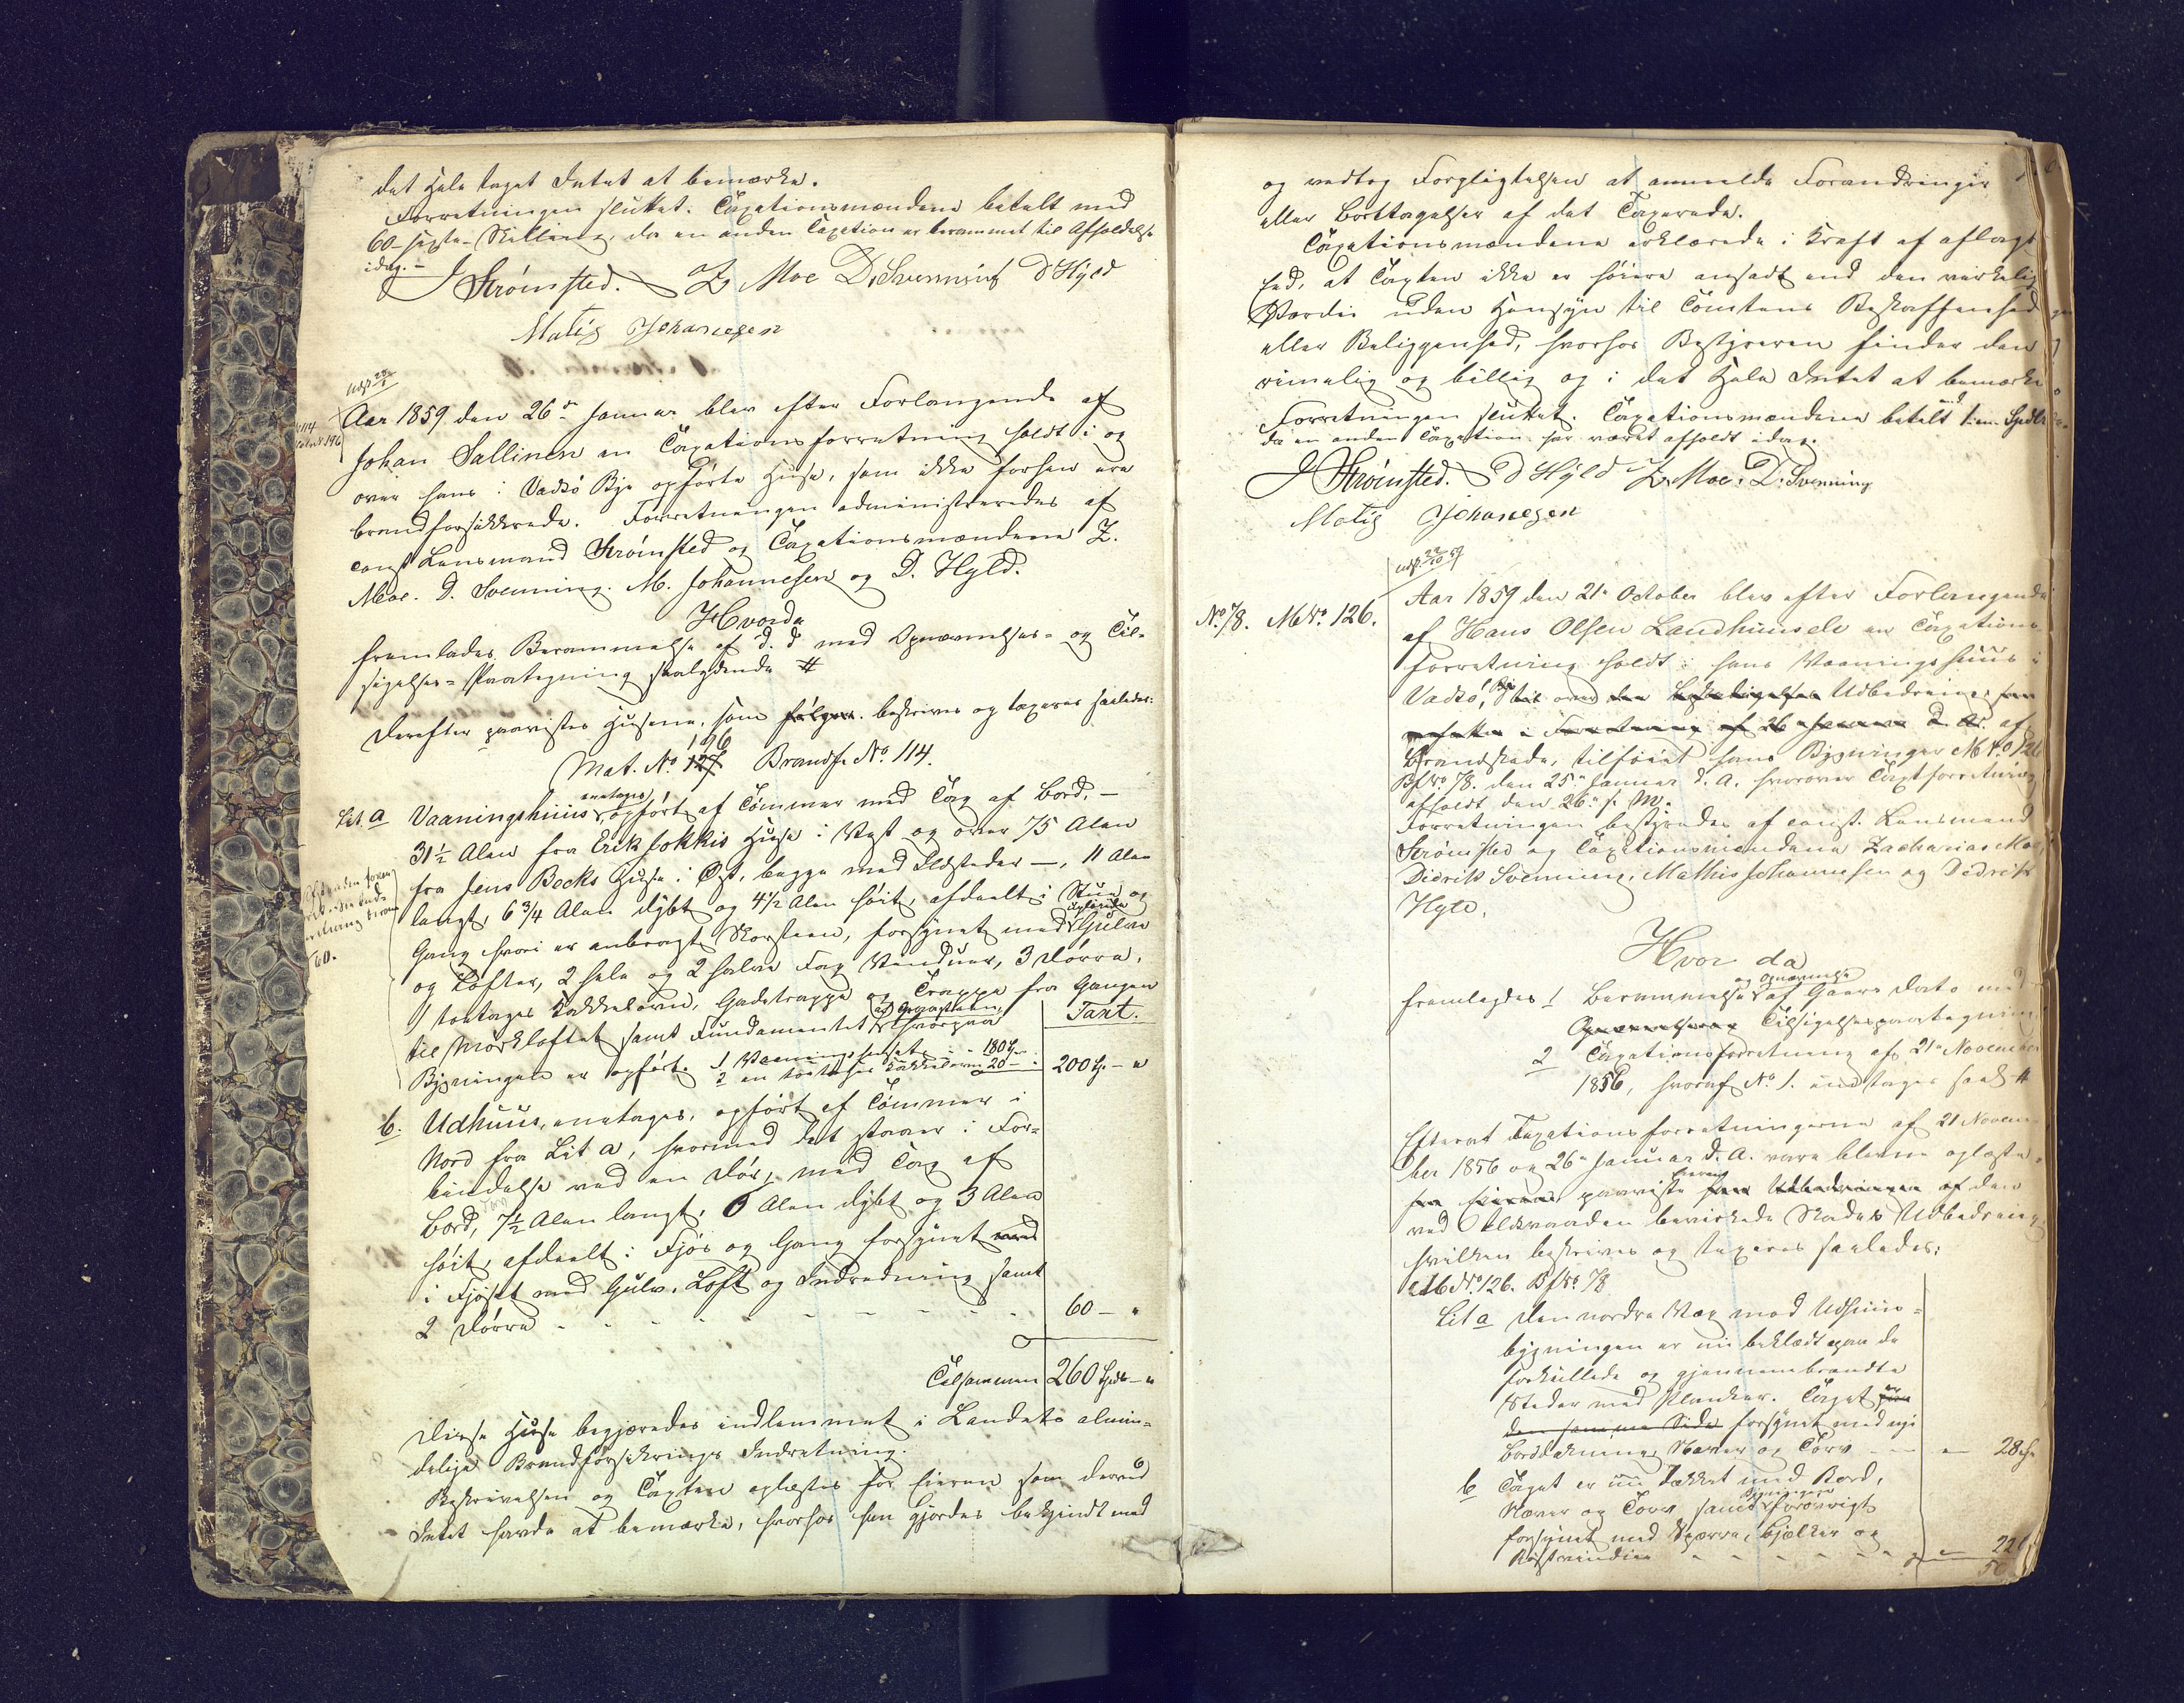 det Hele taget Intet at bemærke.
Forretningen sluttet. Taxationsmændene betalt med
60 – sexti – Skilling, da en anden Taxation er berammet til Afholdelse
idag. –
J Strømsted. Z Moe D. Svenning D Hyld
Matis Johanesen
Udf.
Aar 1859 den 26de Januar blev efter Forlangende af
Johan Sallinen en Taxationsforretning holdt i og
over hans i Vadsö Bye opførte Huse, som ikke forhen ere
brandforsikkrede. Forretningen administreredes af
const Lensmand Strömsted og Taxationsmændene Z.
Moe. D. Svenning. M. Johannesen og D. Hyld.
Hvorda
fremlades Berammelse af d. d med Opnævnelses- og Til-
sigelses-Paategning saalydende #
Derefter paavistes Husene, som følger. beskrives og taxeres saaledes:
196
Mat. No. 127 Brandf. No. 114.
Lit. a Vaaningshuus, eenetages, opført af Tømmer med Tag af Bord, –
31½ Alen fra Erik Jokkis Huse i Vest og over 75 Alen
fra Jens Becks Huse i Øst, begge med Ildsteder –, 11 Alen
langt, 6¾ Alen dybt og 4½ Alen høit, afdeelt i Stue og
Gang hvori er anbragt Skorsteen, forsynet med Gulve
og Lofter, 2 hele og 2 halve Fag Vinduer, 3 Dørre,
1 toetages Kakkelovn, Gadetrappe og Trappe fra Gangen
til Mørkloftet samt Fundamentet hvorpaa
Taxt.
Bygningen er opført. 1 Vaaningshuset - - 180 Sp.
2 en toetages Kakkelovn 20 – : 200 Sp. – "
b. Udhuus, eenetages, opført af Tømmer i
Nord fra Lit a, hvormed det staaer i For-
bindelse ved en Dør, med Tag af
Bord, 7½ Alen langt, 6 Alen dybt og 3 Alen
høit, afdeelt i Fjøs og Gang forsynet med
i Fjøset med Gulv, Loft og Indredning samt
2 Dørre - - - - - - - - 60 – "
Tilsammen 260 Spdlr – "
Disse Huse begjæredes indlemmet i Landets almin-
delige Brandforsikrings Indretning.
Beskrivelsen og Taxten oplæstes for Eieren som derved
Intet havde at bemærke, hvorhos han gjordes bekjendt med
og vedtog Forpligtelsen at anmelde Forandringer
eller Borttagelser af det Taxerede.
Taxationsmændene erklærede i Kraft af aflagt
Eed, at Taxten ikke er høiere ansadt end den virkelige
Værdie uden Hensyn til Tomtens Beskaffenhed
eller Beliggenhed, hvorhos Bestyreren finder den
rimelig og billig og i det Hele Intet at bemærke
Forretningen sluttet. Taxationsmændene betalt 1 – en – Spdlr
da en anden Taxation har været afholdt idag.
J Strømsted. D Hyld Z. Moe. D. Svenning
Matis Johanesen
Udf.
No. 78. M No. 126.
Aar 1859 den 21de October blev efter Forlangende
af Hans Olsen Landhuusele en Taxations-
forretning holdt i hans Vaaningshuus i
Vadsö, Bye over den Udbedring som
i Forretning af 26 Januar d. A. af
Brandskade, tilføiet hans Bygninger M No 126
Bf No. 78. den 25de Januar d. A. hvorover Taxtforretning
afholdt den 26de s. M.
Forretningen bestyredes af const. Lensmand
Strømsted og Taxationsmændene Zacharias Moe,
Didrik Svenning, Mathis Johannesen og Didrik
Hyld.
Hvor da
og Opnævnelse
fremlagdes 1 Berammelse af Gaars Dato med
Opnævnelses og Tilsigelsespaategning
2 Taxationsforretning af 21de November
1856, hvoraf No. 1. indtages saal #
Efterat Taxationsforretningerne af 21 Novem-
ber 1856 og 26de Januar d. A. vare blevne oplæste,
paaviste Eieren den
ved Ildsvaaden bevirkede Skades Udbedring
hvilken beskrives og taxeres saaledes:
M No. 126. Bf No. 78
Lit a Den nordre Væg mod Udhuus-
bygningen er nu beklædt paa de
forkullede og gjennembrændte
Steder med Planker. Taget
den samme Side forsynet med nye
Bordtækning, Næver og Tørv - - – 28 Sp
b Taget er nu tækket med Bord,
Næver og Tørv samt Bygningen forøvrigt
forsynet med Sperre, Bjælker og
- - - - - - 22